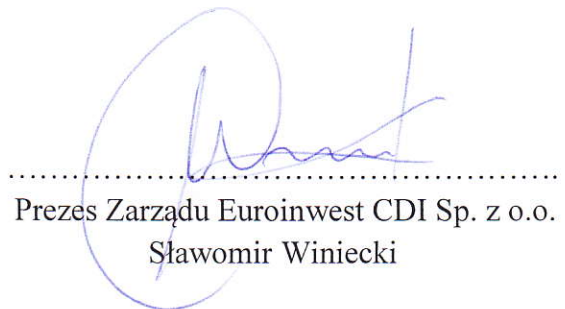 Prezes Zarządu Euroinwest CDI Sp. z o.o.
Sławomir Winiecki